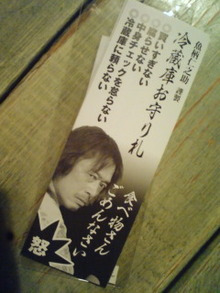 魚柄仁之助 謹製
冷蔵庫お守り札
○買いすぎない
○腐らせない
○中身チェックを怠らない
○冷蔵庫に頼らない
食べ物さん
ごめんなさい
怒